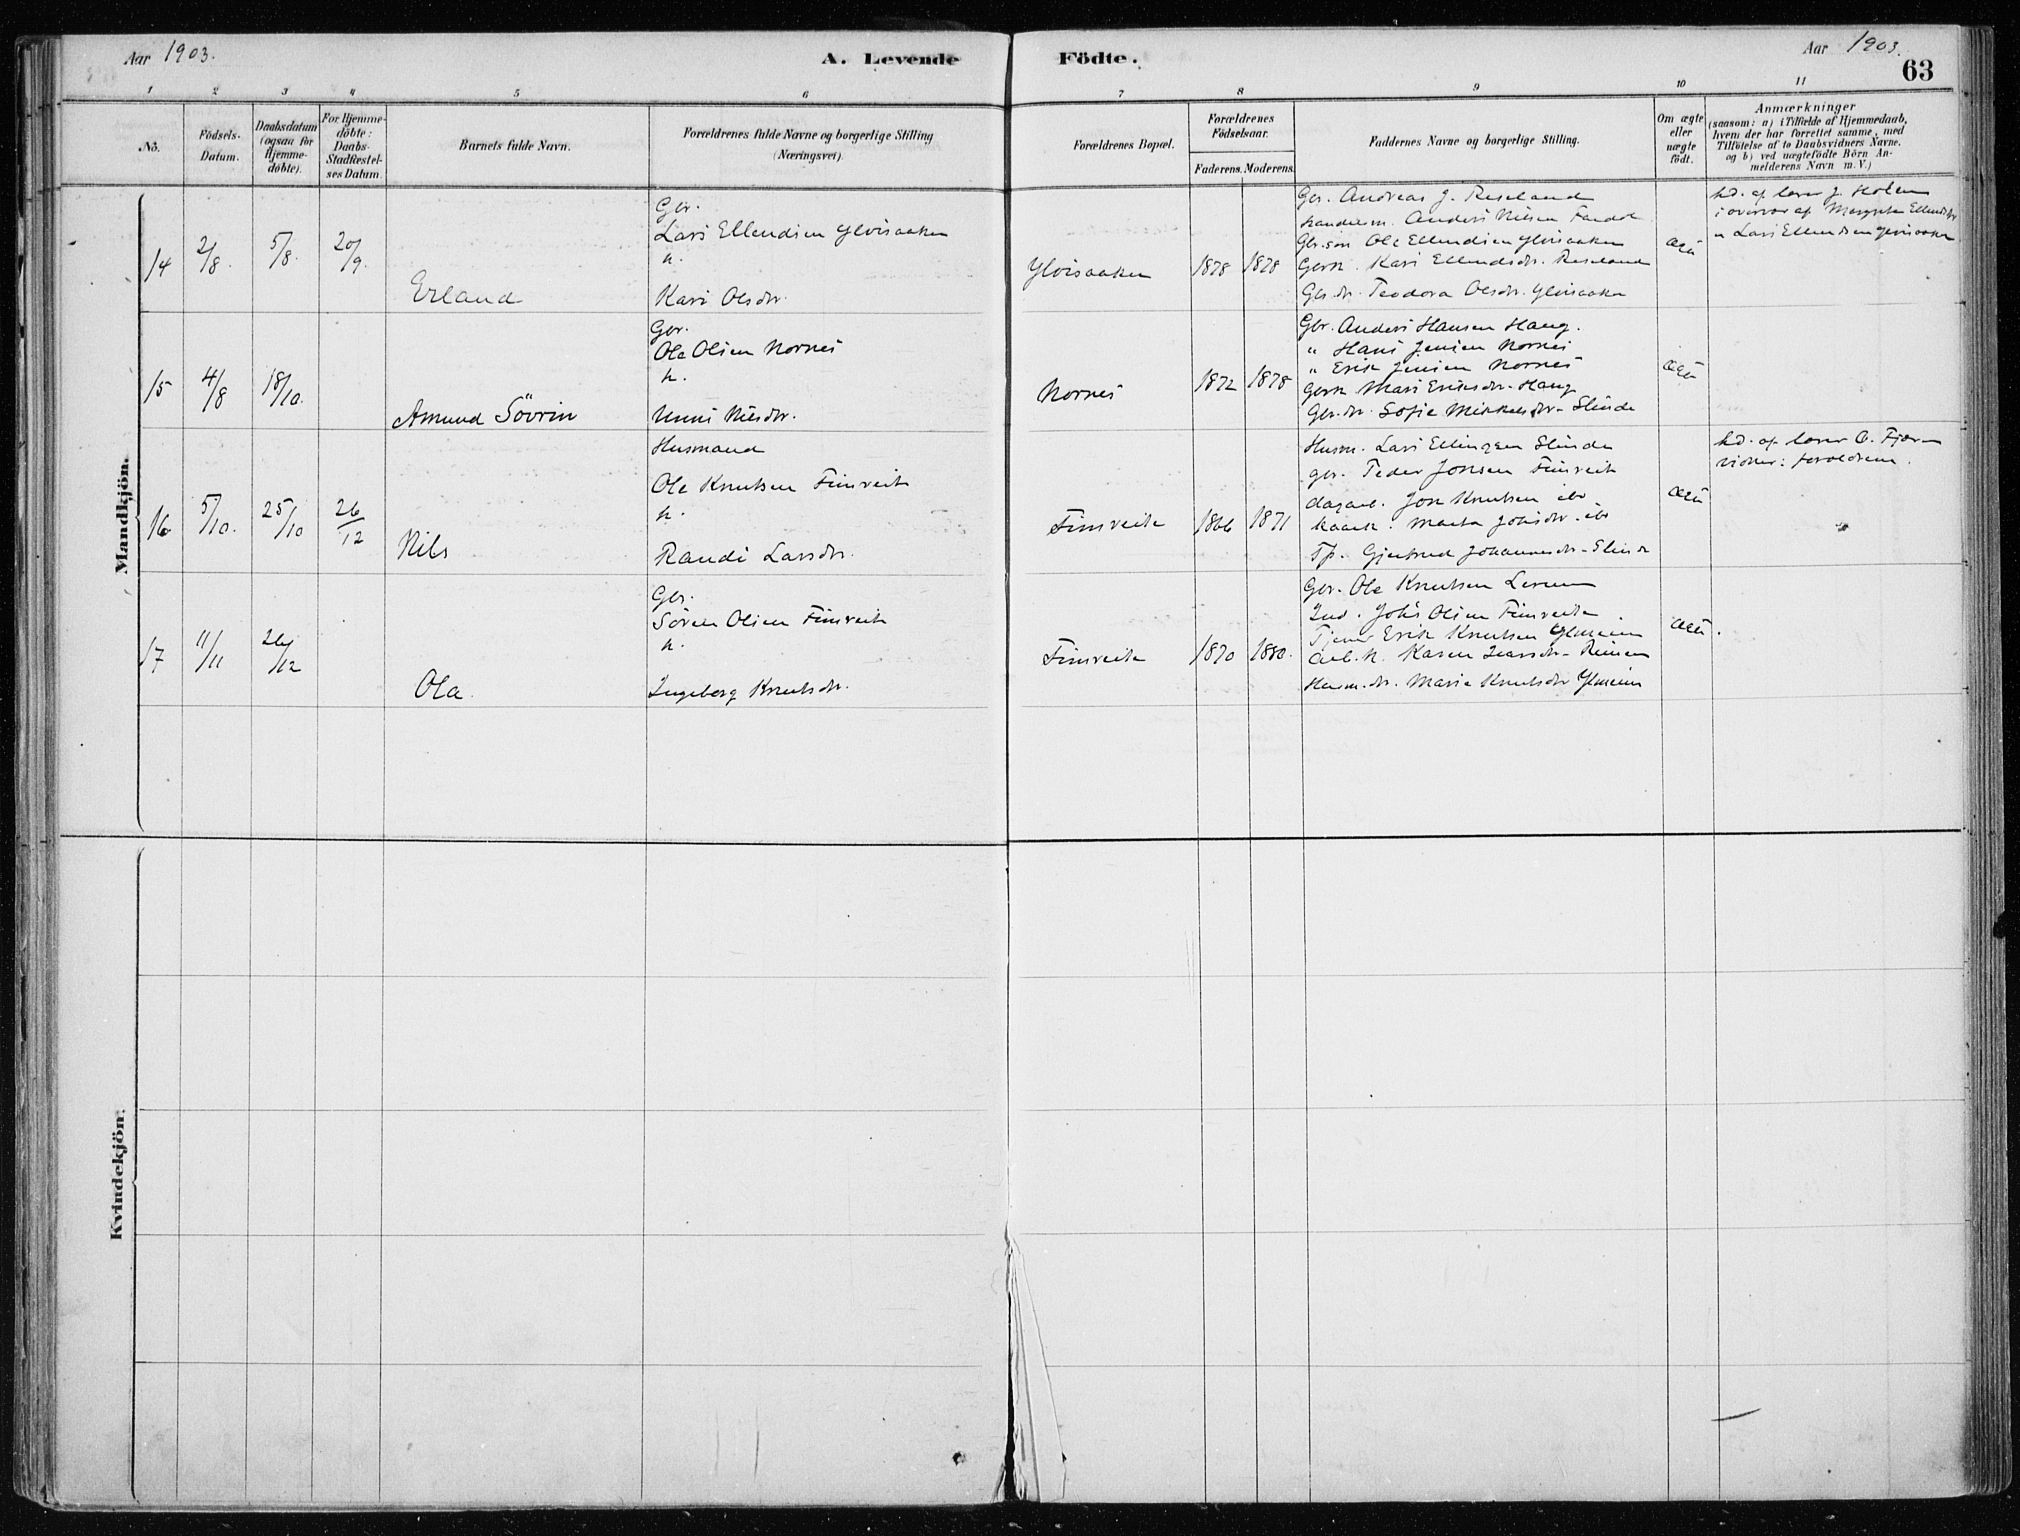 Aar 1903.
A. Levende Födte.
Aar 1903.
63
1 2 3 4 5 6 7 8 9 10 11
No.
Födsels-Datum.
Daabsdatum (ogsaa for Hjemme-döbte).
For Hjemme-döbte: Daabs-Stadfæstel-ses Datum.
Barnets fulde Navn.
Forældrenes fulde Navne og borgerlige Stilling (Næringsvei).
Forældrenes Bopæl.
Forældrenes Födselsaar.
Faderens. Moderens.
Faddernes Navne og borgerlige Stilling.
Om ægte eller uægte födt.
Anmærkninger (saasom: a) i Tilfælde af Hjemmedaab, hvem der har forrettet samme, med Tilföielse af to Daabsvidners Navne. og b) ved uægtefödte Börn An-melderens Navn m. V.)
Mandkjön.
14
2/8.
5/8.
20/9.
Erland
Gbr.
Lars Ellendsen Ylvisaaker
h.
Kari Olsdtr.
Ylvisaaker
1878
1878
Gbr. Andreas J. Reseland
Handelsm. Anders Nilsen
Gbr. søn Ole Ellendsen Ylvisaaker
Gbrk. Kari Ellendsdtr. Reseland
Gbr. dr. Teodora Olsdtr. Ylvisaaker
ægte
hd. af lærer J. Holen
i overvær af Ellendsdtr
u Lars Ellendsen Ylvisaaker
15
4/8
18/10.
Amund Sövrin
Gbr.
Ole Olsen Nornes
h.
Unni Nilsdtr.
Nornes
1872
1878
Gbr. Anders Hansen Haug.
" Hans Jensen Nornes
" Erik Jensen Nornes
Gbrk Mari Eriksdtr. Haug
Gbr. dr. Sofie Mikkelsdtr. Slinde
ægte
16
5/10.
25/10
26/12
Nils
Husmand
Ole Knutsen Fimreite
h.
Randi Larsdtr.
Fimreite
1866
1871
Husm. Lars Ellingsen Slinde
gbr. Peder Jonsen Fimreite
dagarb. Jon Knutsen ib
Marta Johsdtr. ib
Tp. Gjertrud Johannesdtr. Slinde
ægte
hd. af lærer O.
vidner: forældrene.
17
11/11
26/12
Ola
Gbr.
Sören Olsen Fimreite
h.
Ingeborg Knutsdtr.
Fimreite
1870
1880.
Gbr. Ole Knutsen Lerum
Ind. Johs Olsen Fimreite
Tjener Erik Knutsen Ylmeim
Arb. k. Karen
Husm. dr. Marie Knutsdtr Ylmeim
ægte.
Kvindekjön.